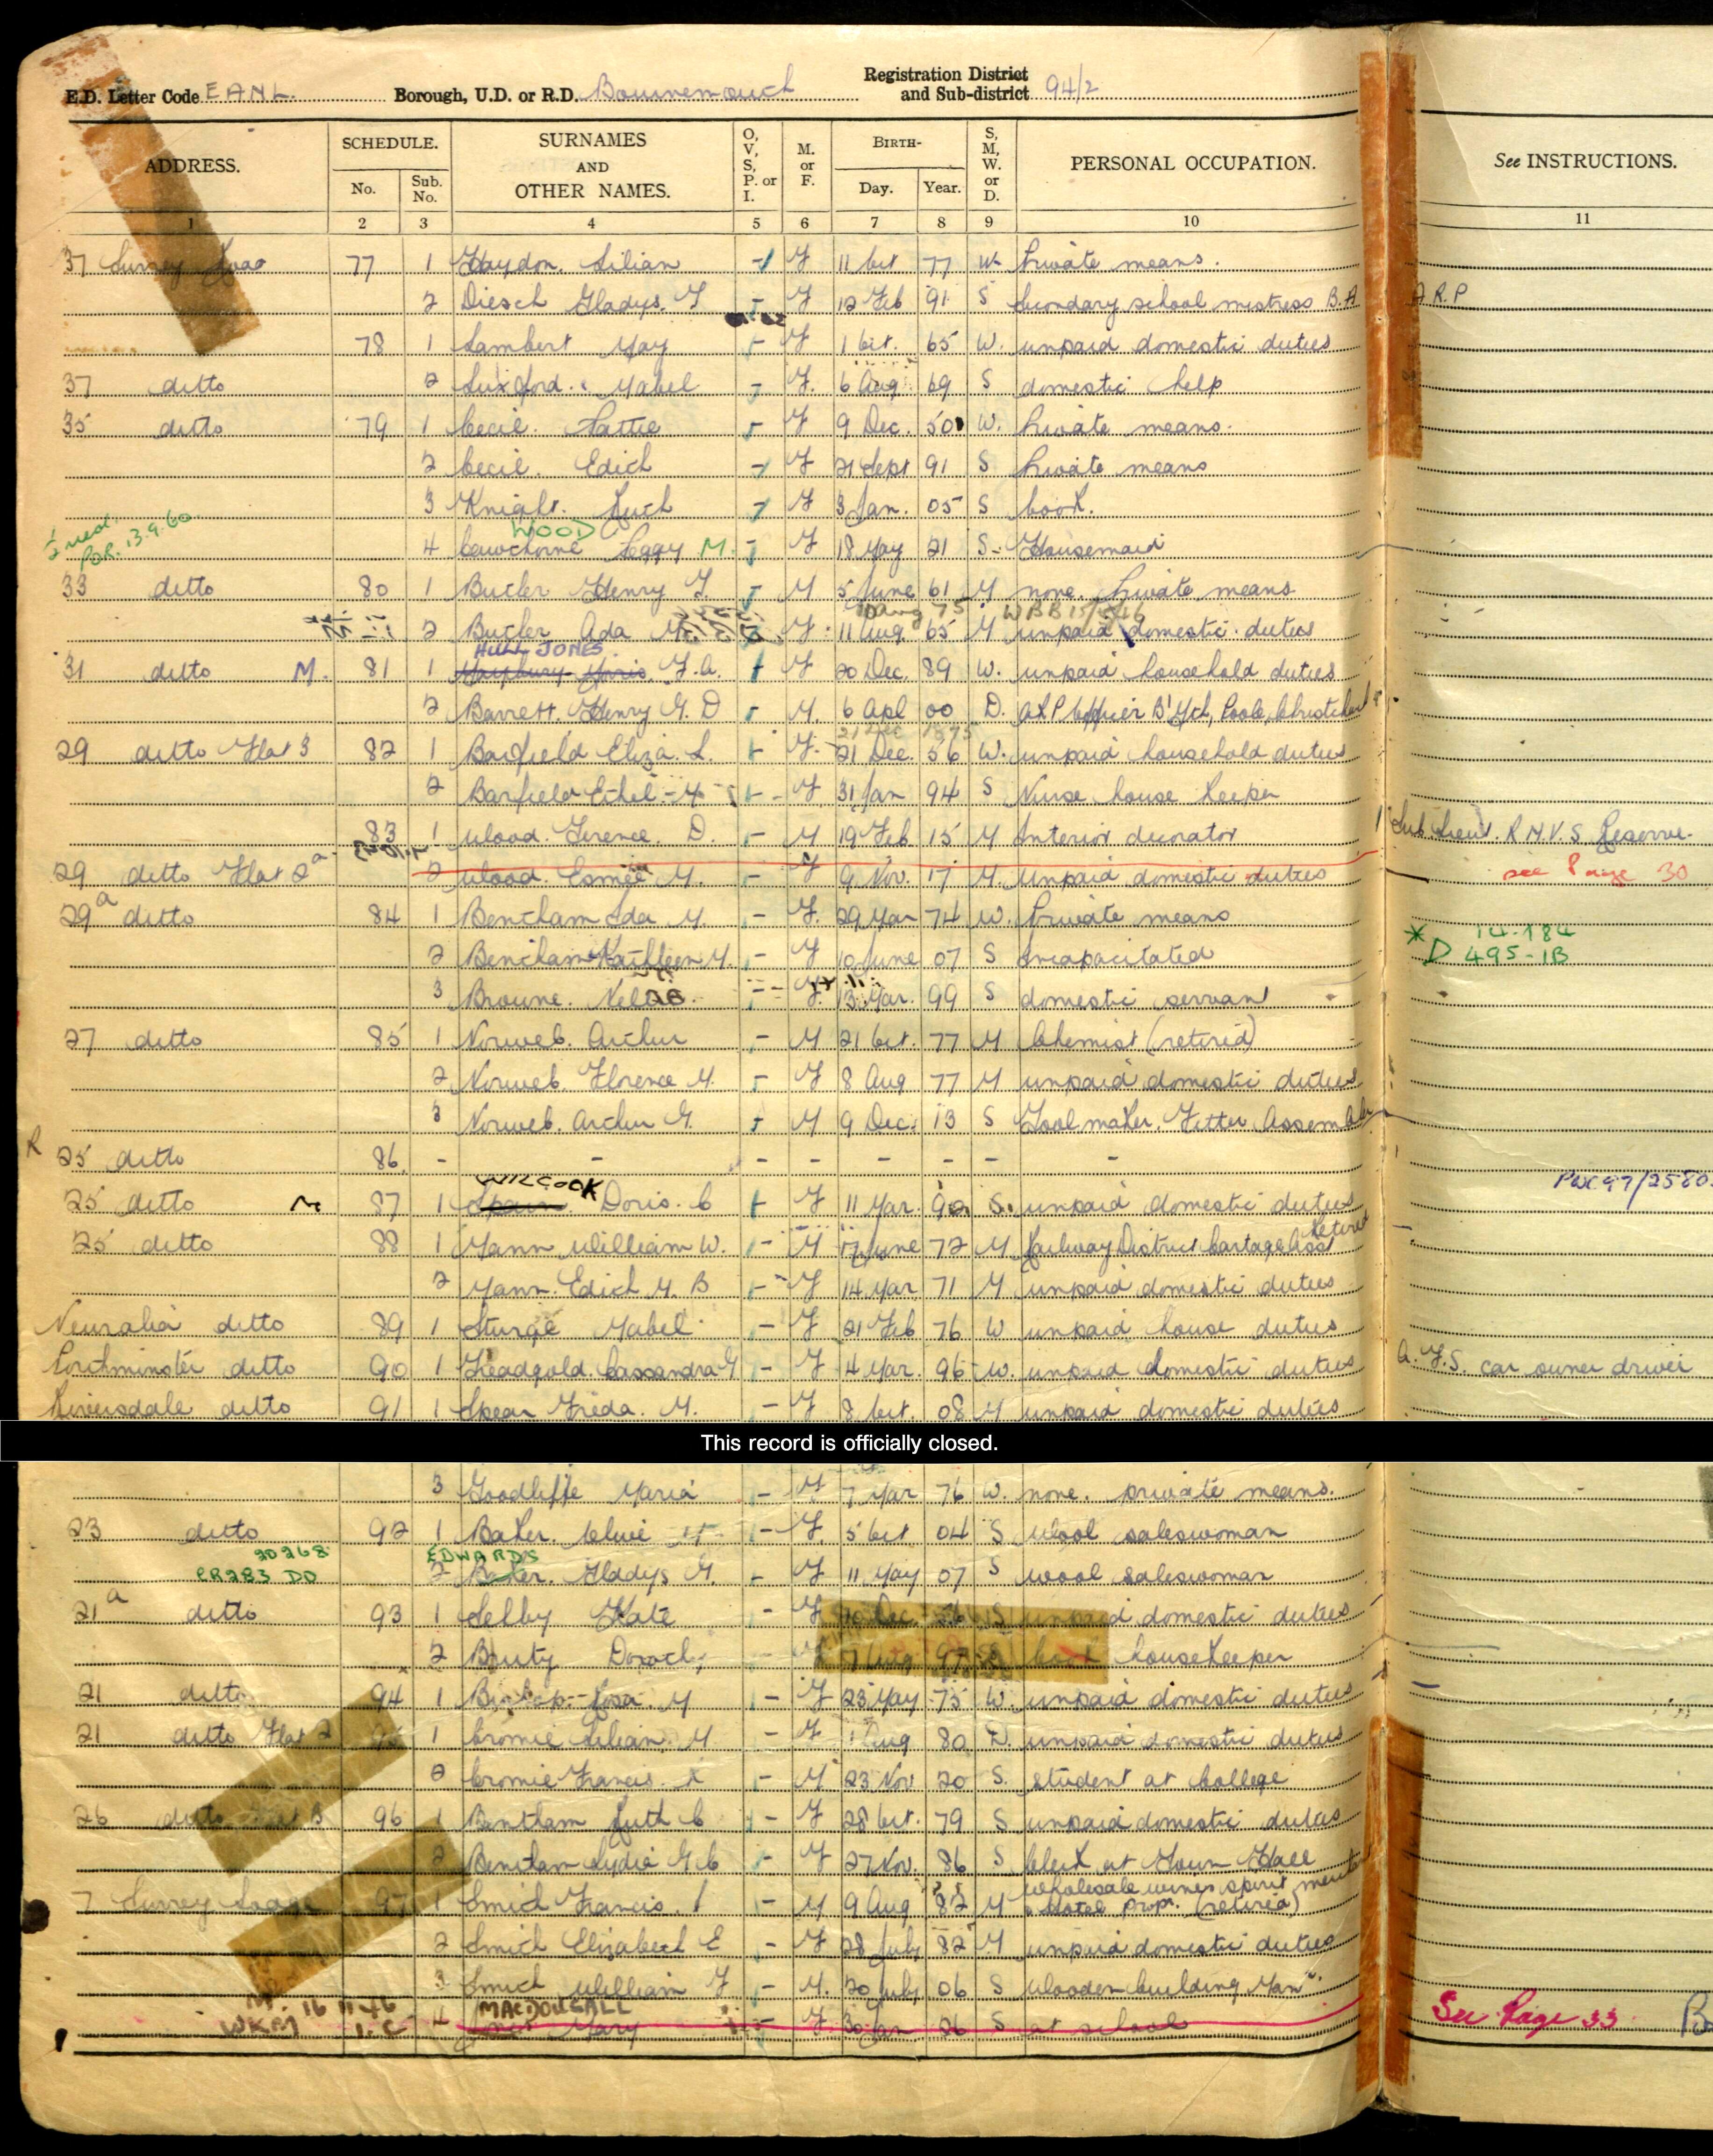 E.D. Letter Code EANL. Borough, U.D. or R.D. Bournemouth Registration District and Sub-district 94/2
ADDRESS. SCHEDULE. No. Sub. No. SURNAMES AND OTHER NAMES. O, V, S, P. or I. M. or F. BIRTH- Day. Year. S, M, W. or D. PERSONAL OCCUPATION. See INSTRUCTIONS.
1 2 3 4 5 6 7 8 9 10 11
37 Surrey Road 77 1 Haydon. Lilian - F 11 Oct 77 W. Private means.
2 Diesch Gladys. F - F 12 Feb 91 S Secondary school mistress B.A A R.P
78 1 Lambert May - F 1 Oct. 65 W. unpaid domestic duties
37 ditto 2 Luxford. Mabel - F. 6 Aug 69 S domestic help
35 ditto 79 1 Cecil. Lattie - F 9 Dec. 50 W. Private means.
2 Cecil. Edith - F 21 Sept 91 S Private means
3 Knight. Ruth - F 3 Jan. 05 S Cook.
WOOD
13.9.60
4 Cawthorne Peggy M. - F 18 May 21 S- Housemaid
33 ditto 80 1 Butler Henry J. - M 5 June 61 M none. Private means
10 Aug 75 W BB 15/5/46
2 Butler Ada M. F 11 Aug. 65 M unpaid domestic duties
HULL JONES
31 ditto M. 81 1 F.A. F 20 Dec. 89 W. unpaid household duties
2 Barrett. Henry G. D - M. 6 Apl 00 D. ARP Officer B'Mth, Poole, Christchurch
21 Dec 1875
29 ditto Flat 3 82 1 Barfield Eliza. L. - F. 21 Dec. 56 W. unpaid household duties
2 Barfield Ethel. M - F 31 Jan 94 S Nurse house keeper
83 1 Wood. Terence. D. - M 19 Feb 15 M Interior decorator Sub Lieut. R.N.V.S Reserve.
29 ditto Flat 2a 2 Wood. Esmée M. - F 9 Nov. 17 M unpaid domestic duties see Page 30
29a ditto 84 1 Bentham Ida M. - F. 29 Mar 74 W. Private means
14.184
2 Bentham Kathleen M. - F 10 June 07 S Incapacitated * D 495-1B
3 Browne. F. 13 Mar. 99 S domestic servant
27 ditto 85 1 Norweb. Arthur - M 21 Oct. 77 M Chemist (retired)
2 Norweb. Florence M. - F 8 Aug 77 M unpaid domestic duties
3 Norweb. Arthur G. - M 9 Dec. 13 S Tool maker. Fitter Assembler
R 25 ditto 86. - - - - - - - -
WILCOCK PWC97/2580
25 ditto M 87 1 Spain Doris. C F 11 Mar. 90. S. unpaid domestic duties
25 ditto 88 1 Mann William W. - M 17 June 72 M Railway District Cartage Asst Retired
2 Mann. Edith M. B - F 14 Mar 71 M unpaid domestic duties
Neuralia ditto 89 1 Sturge Mabel - F 21 Feb 76 W unpaid house duties
Porthminster ditto 90 1 Treadgold. Cassandra G - F 4 Mar. 96 W. unpaid domestic duties A.F.S. car owner driver
Riversdale ditto 91 1 Spear Freda. M. - F 8 Oct. 08 M unpaid domestic duties
This record is officially closed.
3 Goodliffe Maria - F 7 Mar 76 W. none. private means.
23 ditto 92 1 Baker. Olive H - F. 5 Oct 04 S Wool saleswoman
20268 EDWARDS
CR283 DD 2 Baker. Gladys G. - F 11 May 07 S wool saleswoman
21a ditto 93 1 Selby Kate - F Dec. S unpaid domestic duties
2 Bruty Dorothy 7 Aug 97 S housekeeper
21 ditto 94 1 Bishop. Rosa. M - F 23 May 75 W. unpaid domestic duties
21 ditto Flat 2 95 1 Cromie Lilian. M - F 1 Aug 80 D. unpaid domestic duties
2 Cromie Francis. - M 23 Nov 20 S. student at College
26 ditto Flat B 96 1 Bentham Ruth C - F 28 Oct. 79 S unpaid domestic duties
2 Bentham Lydia G C - F 27 Nov. 86 S Clerk at Town Hall
wholesale wines spirit merchant
7 Surrey Road 97 1 Smith Francis. - M 9 Aug 82 M Hotel Prop. (retired)
2 Smith Elizabeth E - F 28 July 82 M unpaid domestic duties
3 Smith William F - M. 20 July 06 S Wooden building Man.
16 11 46 MACDOUGALL
WKM 4 Mary - F 30 Jan 26 S at school See Page 33